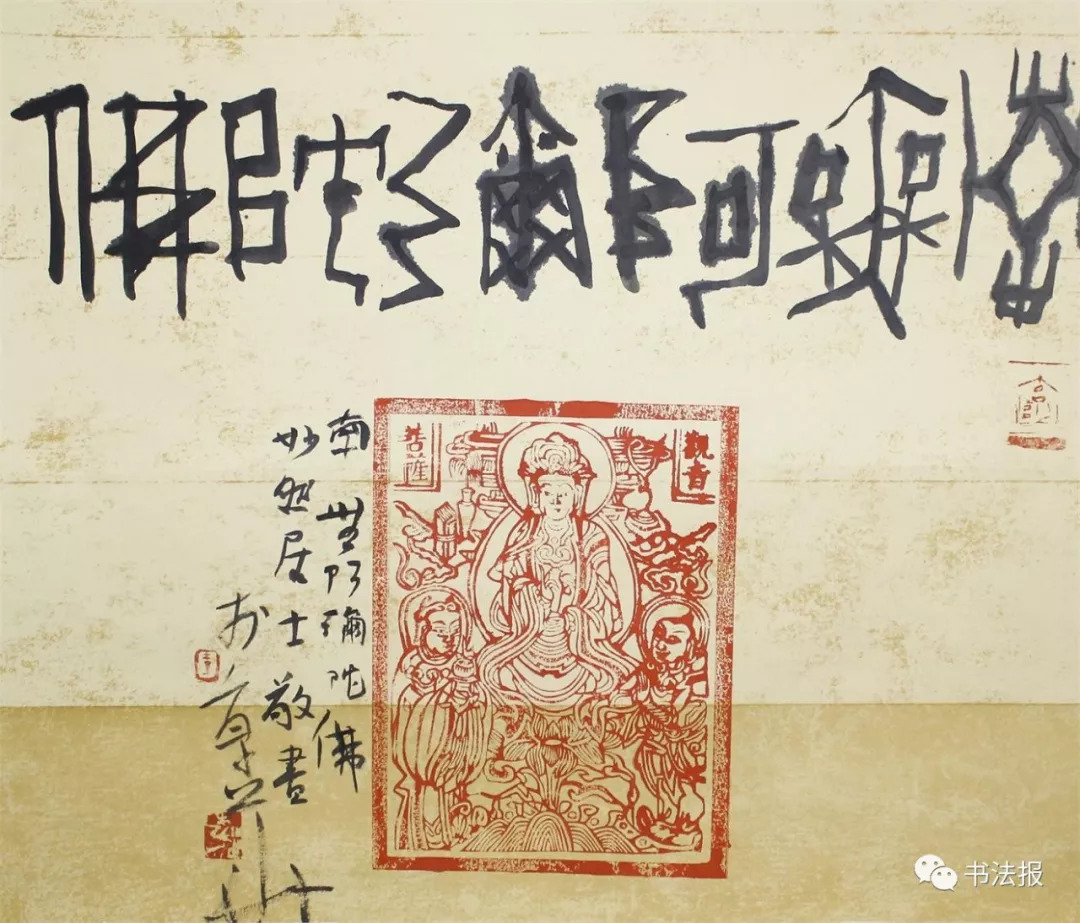 南無阿彌陀佛
觀音
菩薩
南無阿彌陀佛
妙然居士敬書
於
书法报